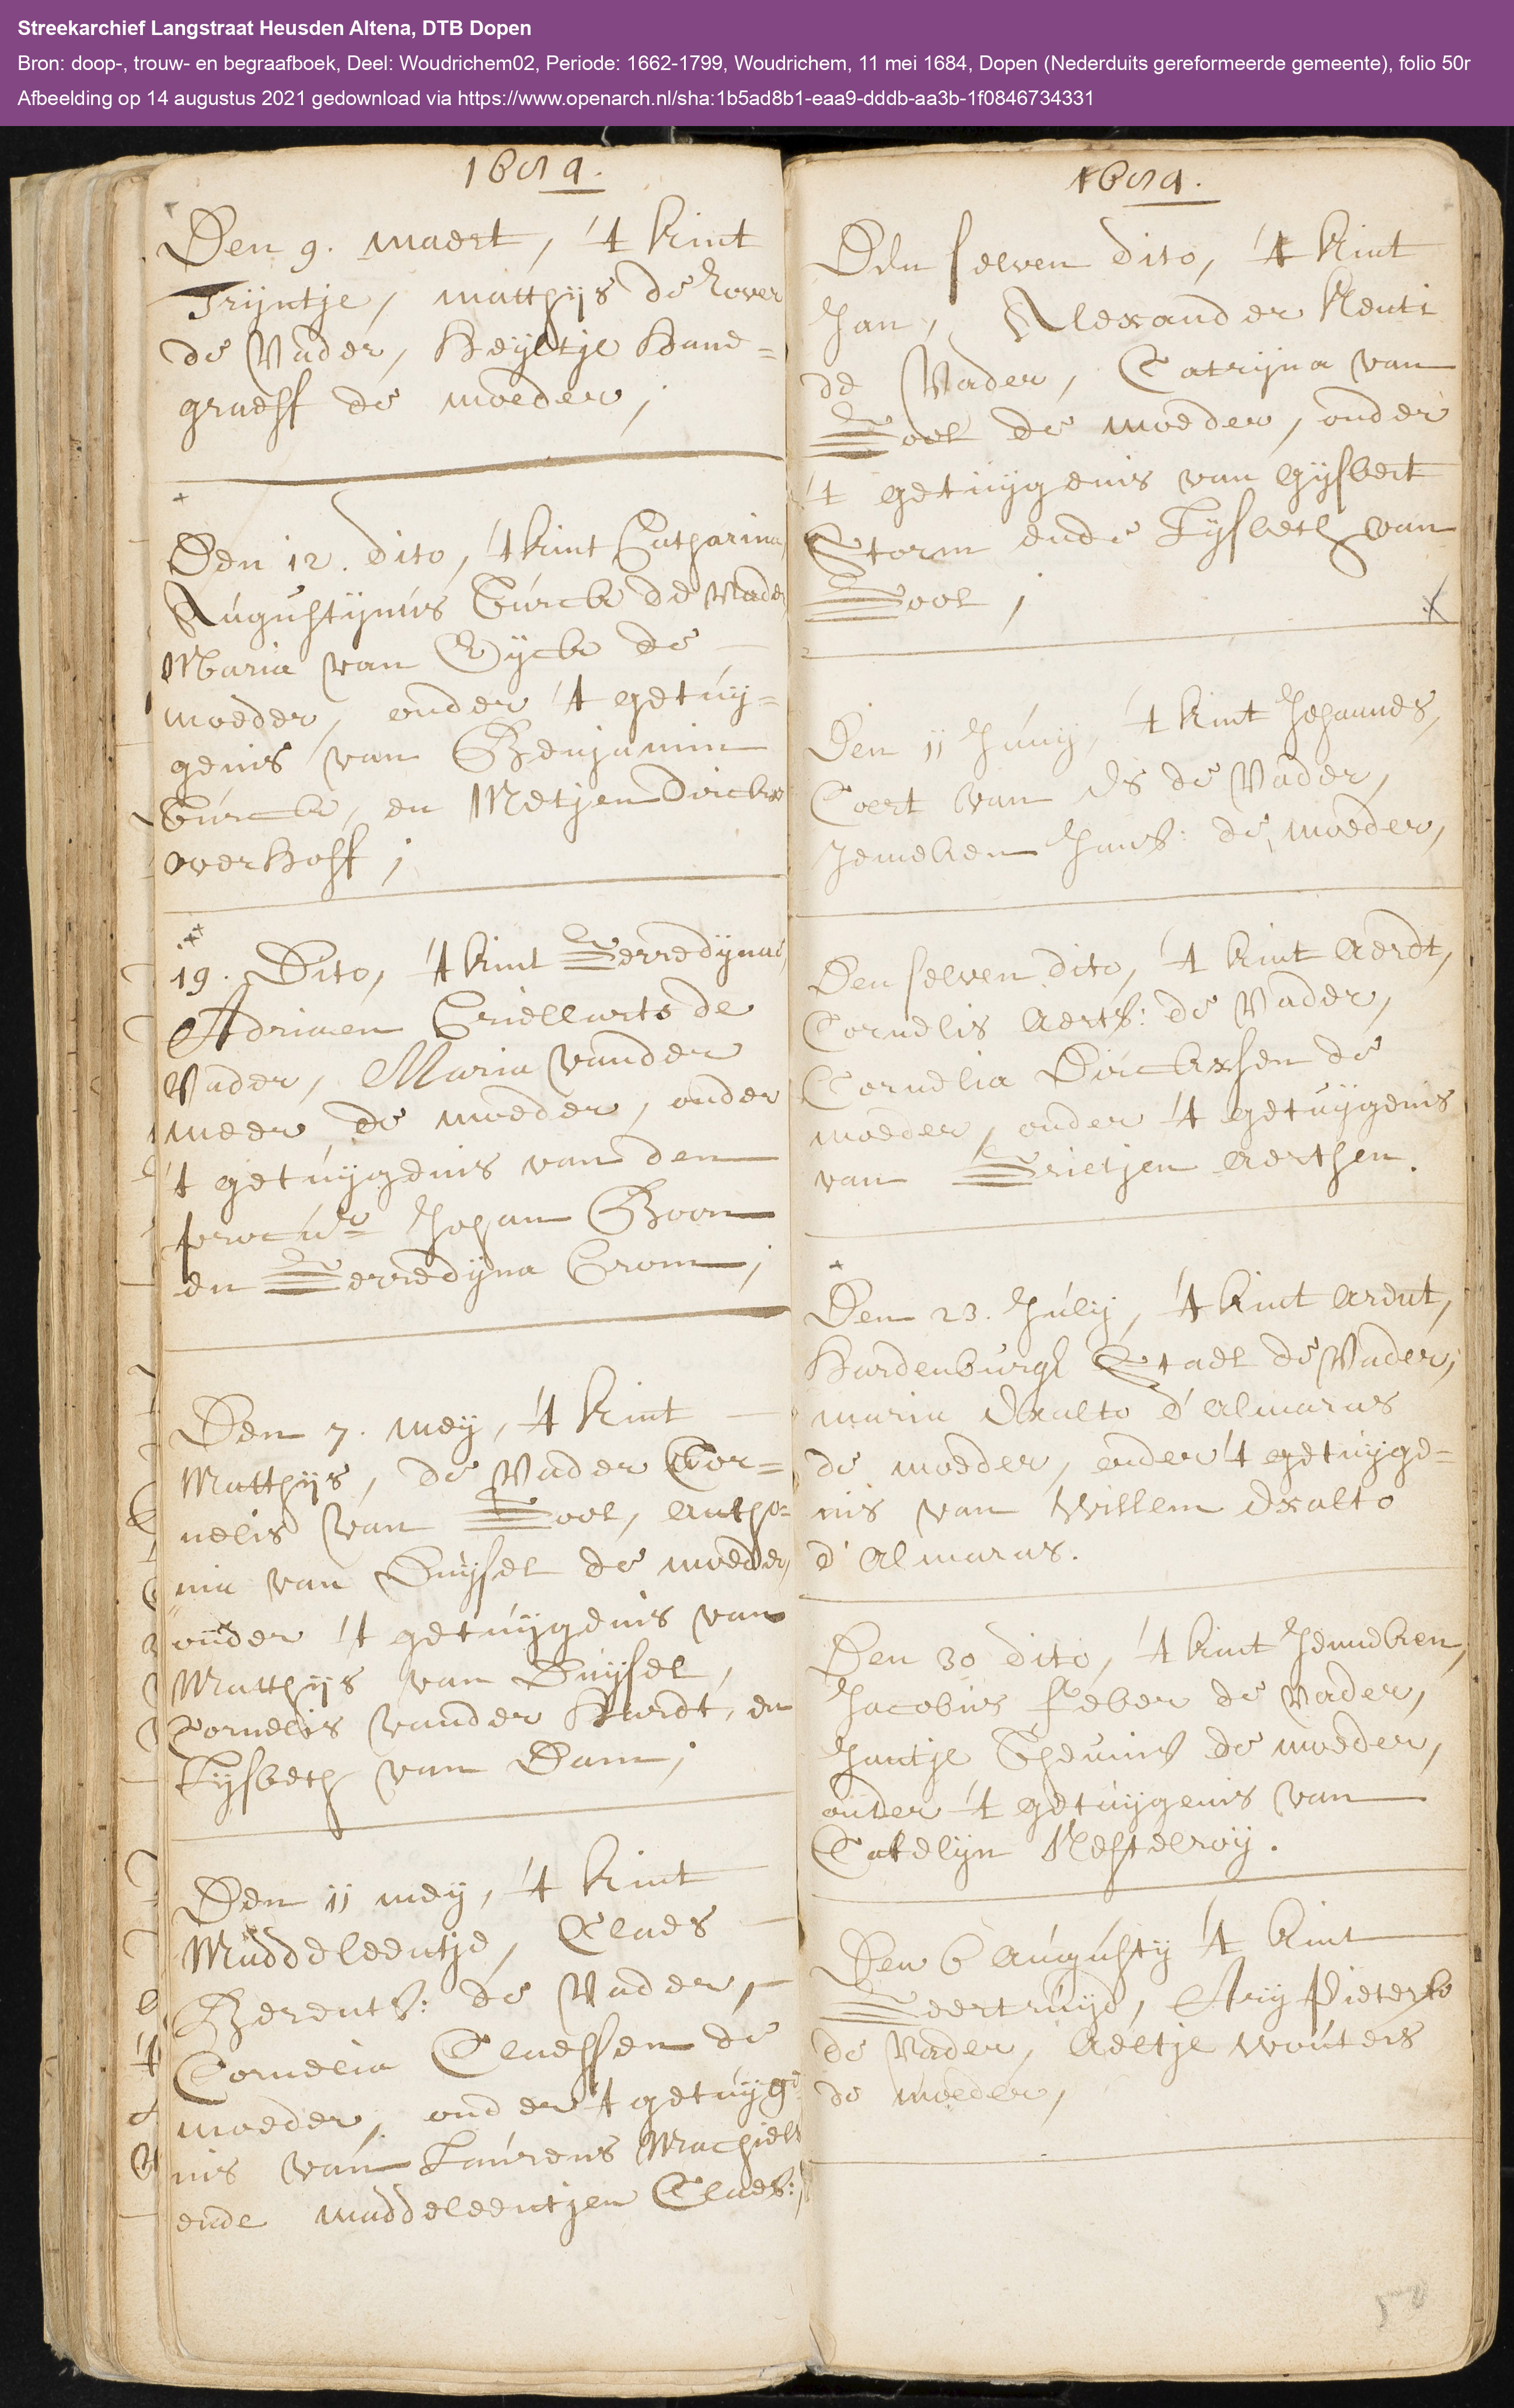 Streekarchief Langstraat Heusden Altena, DTB Dopen
Bron: doop-, trouw- en begraafboek, Deel: Woudrichem02, Periode: 1662-1799, Woudrichem, 11 mei 1684, Dopen (Nederduits gereformeerde gemeente), folio 50r
Afbeelding op 14 augustus 2021 gedownload via https://www.openarch.nl/sha:1b5ad8b1-eaa9-dddb-aa3b-1f0846734331
1684.
Den 9. maert, 't kint
Trijntje, matthijs de Rover
de Vader, Heyltje Hane=
graeff de moeder;
Den 12. dito, 't kint Catharina,
Augustijnus Turck de Vader
Maria van Eyck de
moeder, onder 't getuy=
genis van Benjamin
Turck, en Metjen Dircks
overhoff;
19. Dito, 't kint Gerredyna,
Adriaen Criellarts de
Vader, Maria vander
meer de moeder, onder
't getuygenis van den
procur Johan Boon
en Gerredyna Crom;
Den 7. mey, 't kint
Matthijs, de Vader Cor=
nelis van Gool, Antho=
nia van Duysel de moeder,
onder 't getuygenis van
Matthijs van Duysel,
Cornelis vander Hardt, en
Lysbeth van Dam;
Den 11 mey, 't kint
Maddeleentje, Claes
Berents: de Vader,
Cornelia Claessen de
moeder, onder 't getuyge
nis van Laurens Machiels
ende maddeleentjen Claes:;
1684.
Den selven dito, 't kint
Jan, Alexander
de Vader, Catryna van
Gool de moeder, onder
't getuygenis van Gysbert
Storm ende Lysbeth van
Gool;
Den 11 Juny, 't kint Johannes,
Coert van Es de Vader,
Jenneken Jans: de moeder,
Den selven dito, 't kint Aerdt,
Cornelis Aerts: de Vader,
Cornelia Dircksen de
moeder, onder 't getuygenis
van Grietjen Aertsen.
Den 23. July, 't kint Arent,
Hardenburgh Stael de Vader;
maria Exalto d'Almaras
de moeder, onder 't getuyge=
nis van Willem Exalto
d'Almaras.
Den 30 dito, 't kint Jenneken,
Jacobus Feber de Vader,
Jantje Theunis de moeder,
onder 't getuygenis van
Catelijn Nestelroy.
Den 6 Augusty 't kint
Geertruyd, Ary Pieterse
de Vader, Aeltje Wouters
de moeder,
50